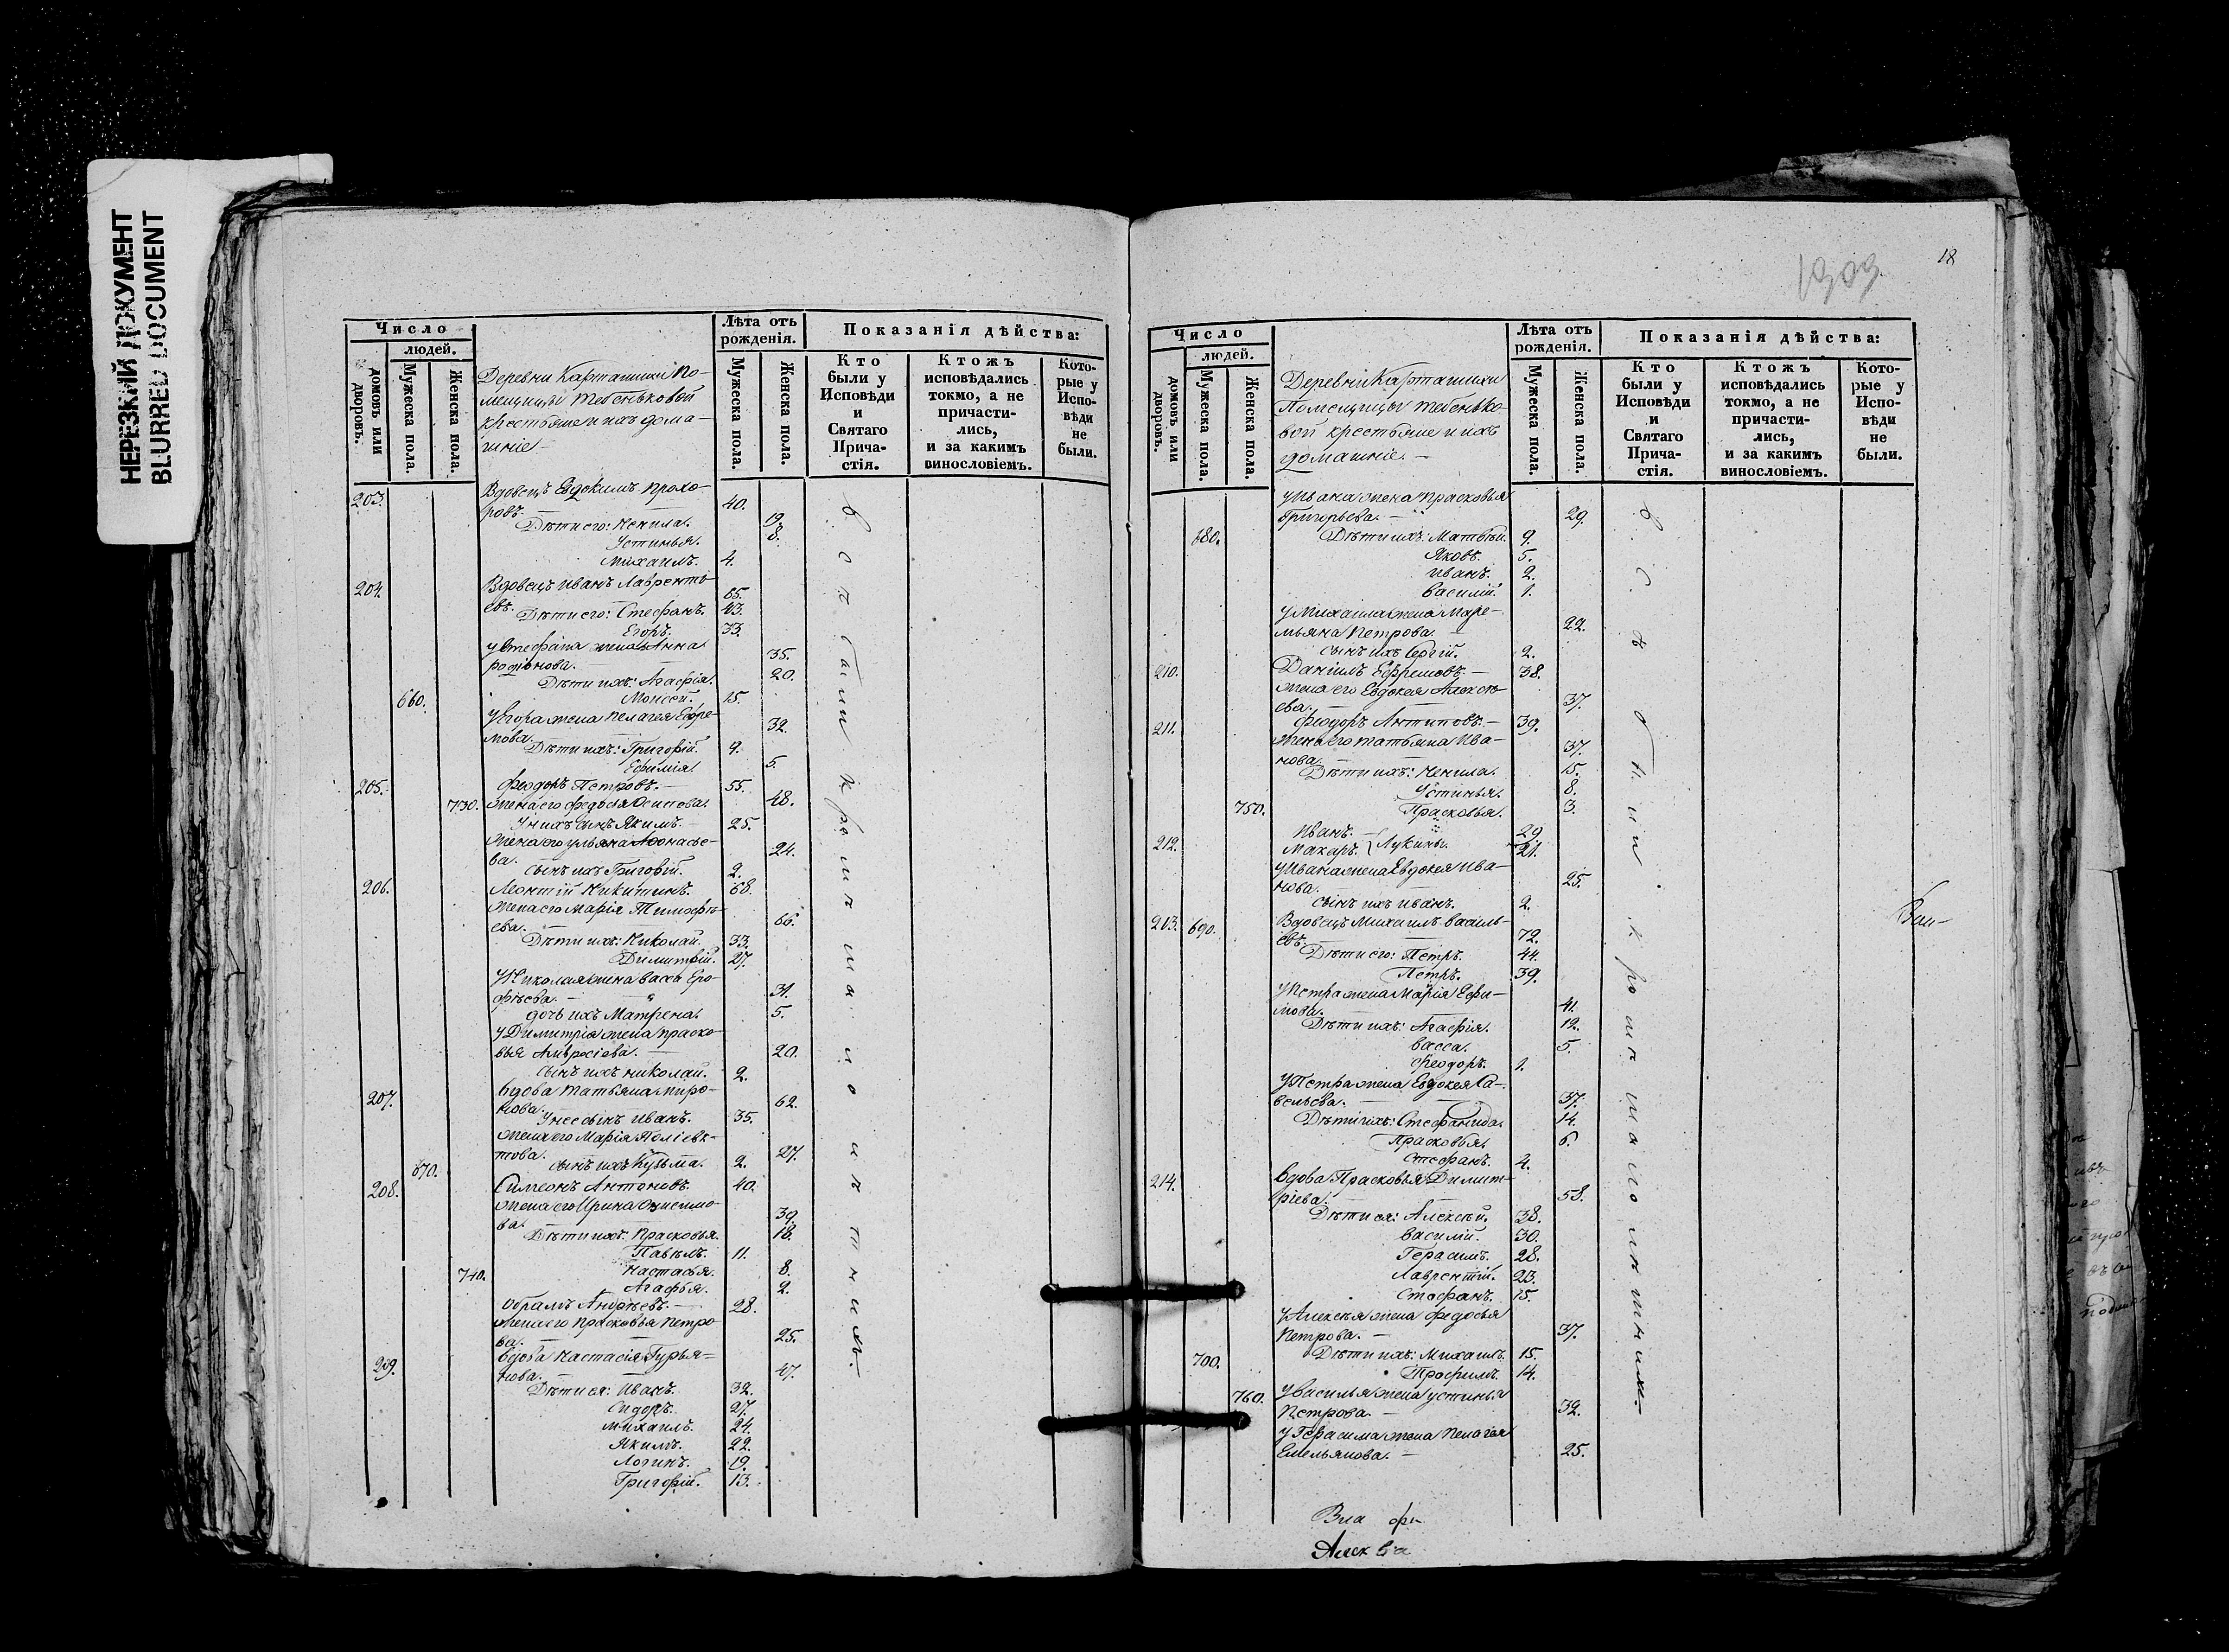 НЕРЕЗКИЙ ДОКУМЕНТ
BLURRED DOCUMENT
Число
людей.
домовъ или дворовъ.
Мужеска пола.
Женска пола.
Деревни Карташихи По-
мещицы Тебеньковой
крестьяне и ихъ дома-
шніе
Лѣта отъ рожденія.
Мужеска пола.
Женска пола.
Показанія дѣйства:
Кто были у Исповѣди и Святаго Прича-стія.
Ктожъ исповѣдались токмо, а не причасти-лись, и за какимъ винословіемъ.
Кото-рые у Испо-вѣди не были.
203. Вдовецъ Евдокимъ Прохо-
ровъ. 40.
Дѣти его: Ненила. 19.
Устинья. 8.
Михаилъ. 4.
204. Вдовецъ Иванъ Лавренть-
евъ. 65.
Дѣти его: Стефанъ. 43.
Егоръ. 33.
У Стефана жена Анна
Родіонова. 35.
Дѣти ихъ: Агафія. 20.
660. Моисей. 15.
У Егора жена Пелагея Ефре-
мова. 32.
Дѣти ихъ: Григорій. 9.
Ефимія. 5.
205. Феодоръ Петровъ. 55.
730. Жена его Федосья Осипова. 48.
У нихъ сынъ Якимъ. 25.
Жена его Ульяна Афонасье-
ва. 24.
Сынъ ихъ Григорій. 2.
206. Леонтій Никитинъ. 68.
Жена его Марія Тимофѣ-
ева. 66.
Дѣти ихъ: Николай. 33.
Димитрій. 27.
У Николая жена Васса Еро-
фѣева. 31.
дочь ихъ Матрена. 5.
У Димитрія жена Праско-
вья Амвросіева. 20.
Сынъ ихъ Николай. 2.
207. Вдова Татьяна Миро-
нова. 62.
У нее сынъ Иванъ. 35.
Жена его Марія Поліевк-
това. 27.
670. Сынъ ихъ Кузьма. 2.
208. Симеонъ Антоновъ. 40.
Жена его Ирина Онисимо-
ва. 39.
Дѣти ихъ: Прасковья. 18.
Павелъ. 11.
740. Настасья. 8.
Агафья. 2.
Абрамъ Андреевъ. 28.
Жена его Прасковья Петро
ва. 25.
209. Вдова Настасія Гурья-
нова. 47.
Дѣти ея: Иванъ. 32.
Сидоръ. 27.
Михаилъ. 24.
Якимъ. 22.
Логинъ. 19.
Григорій. 13.
1303.
18
Число
людей.
домовъ или дворовъ.
Мужеска пола.
Женска пола.
Деревни Карташихи
Помещицы Тебенько-
вой крестьяне и ихъ
домашніе.
Лѣта отъ рожденія.
Мужеска пола.
Женска пола.
Показанія дѣйства:
Кто были у Исповѣди и Святаго Прича-стія.
Ктожъ исповѣдались токмо, а не причасти-лись, и за какимъ винословіемъ.
Кото-рые у Испо-вѣди не были.
У Ивана жена Прасковья
Григорьева. 29.
680. Дѣти ихъ: Матвѣй. 9.
Яковъ. 5.
Иванъ. 2.
Василій. 1.
У Михаила жена Маре-
мьяна Петрова. 22.
Сынъ ихъ Сергій. 2.
210. Даніилъ Ефремовъ. 38.
Жена его Евдокея Алексѣ-
ева. 37.
211. Феодоръ Антиповъ. 39.
Жена его Татьяна Ива-
нова. 37.
Дѣти ихъ: Ненила. 15.
Устинья. 8.
750. Прасковья. 3.
Иванъ. 29.
212. Макаръ. Лукины. 21.
У Ивана жена Евдокея Ива-
нова. 25.
Сынъ ихъ Иванъ. 2.
213. 690. Вдовецъ Михаилъ Василь-
евъ. 72.
Дѣти его: Петръ. 44.
Петръ. 39.
У Петра жена Марія Ефи-
мова. 41.
Дѣти ихъ: Агафія. 12.
Васса. 5.
Феодоръ. 1.
У Петра жена Евдокея Са-
вельева. 37.
Дѣти ихъ: Стефанида. 14.
Прасковья. 6.
Стефанъ. 4.
214. Вдова Прасковья Димит-
ріева. 58.
Дѣти ея: Алексѣй. 38.
Василій. 30.
Герасимъ. 28.
Лаврентій. 23.
Стефанъ. 15.
У Алексѣя жена Федосья
Петрова. 37.
700. Дѣти ихъ: Михаилъ. 15.
Трофимъ. 14.
760. У Василья жена Устинья
Петрова. 32.
У Герасима жена Пелагея
Емельянова. 25.